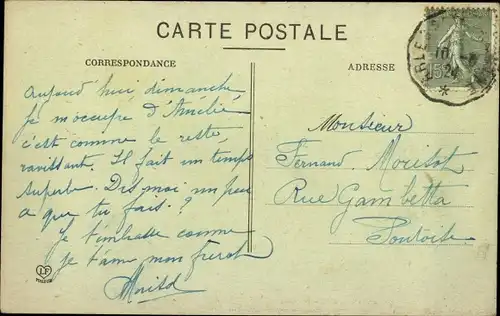 CARTE POSTALE
CORRESPONDANCE
ADRESSE
Aujourd'hui, dimanche
je m'occupe d'Amélie
c'est comme le reste,
ravissant. Il fait un temps
superbe. Dis moi un peu
à que tu fais. ?
Je t'embrasse comme
je t'aime mon frérot
Morisot
Monsieur
Fernand Morisot
Rue Gambetta
Pontoise
ARLES
24
15
LF